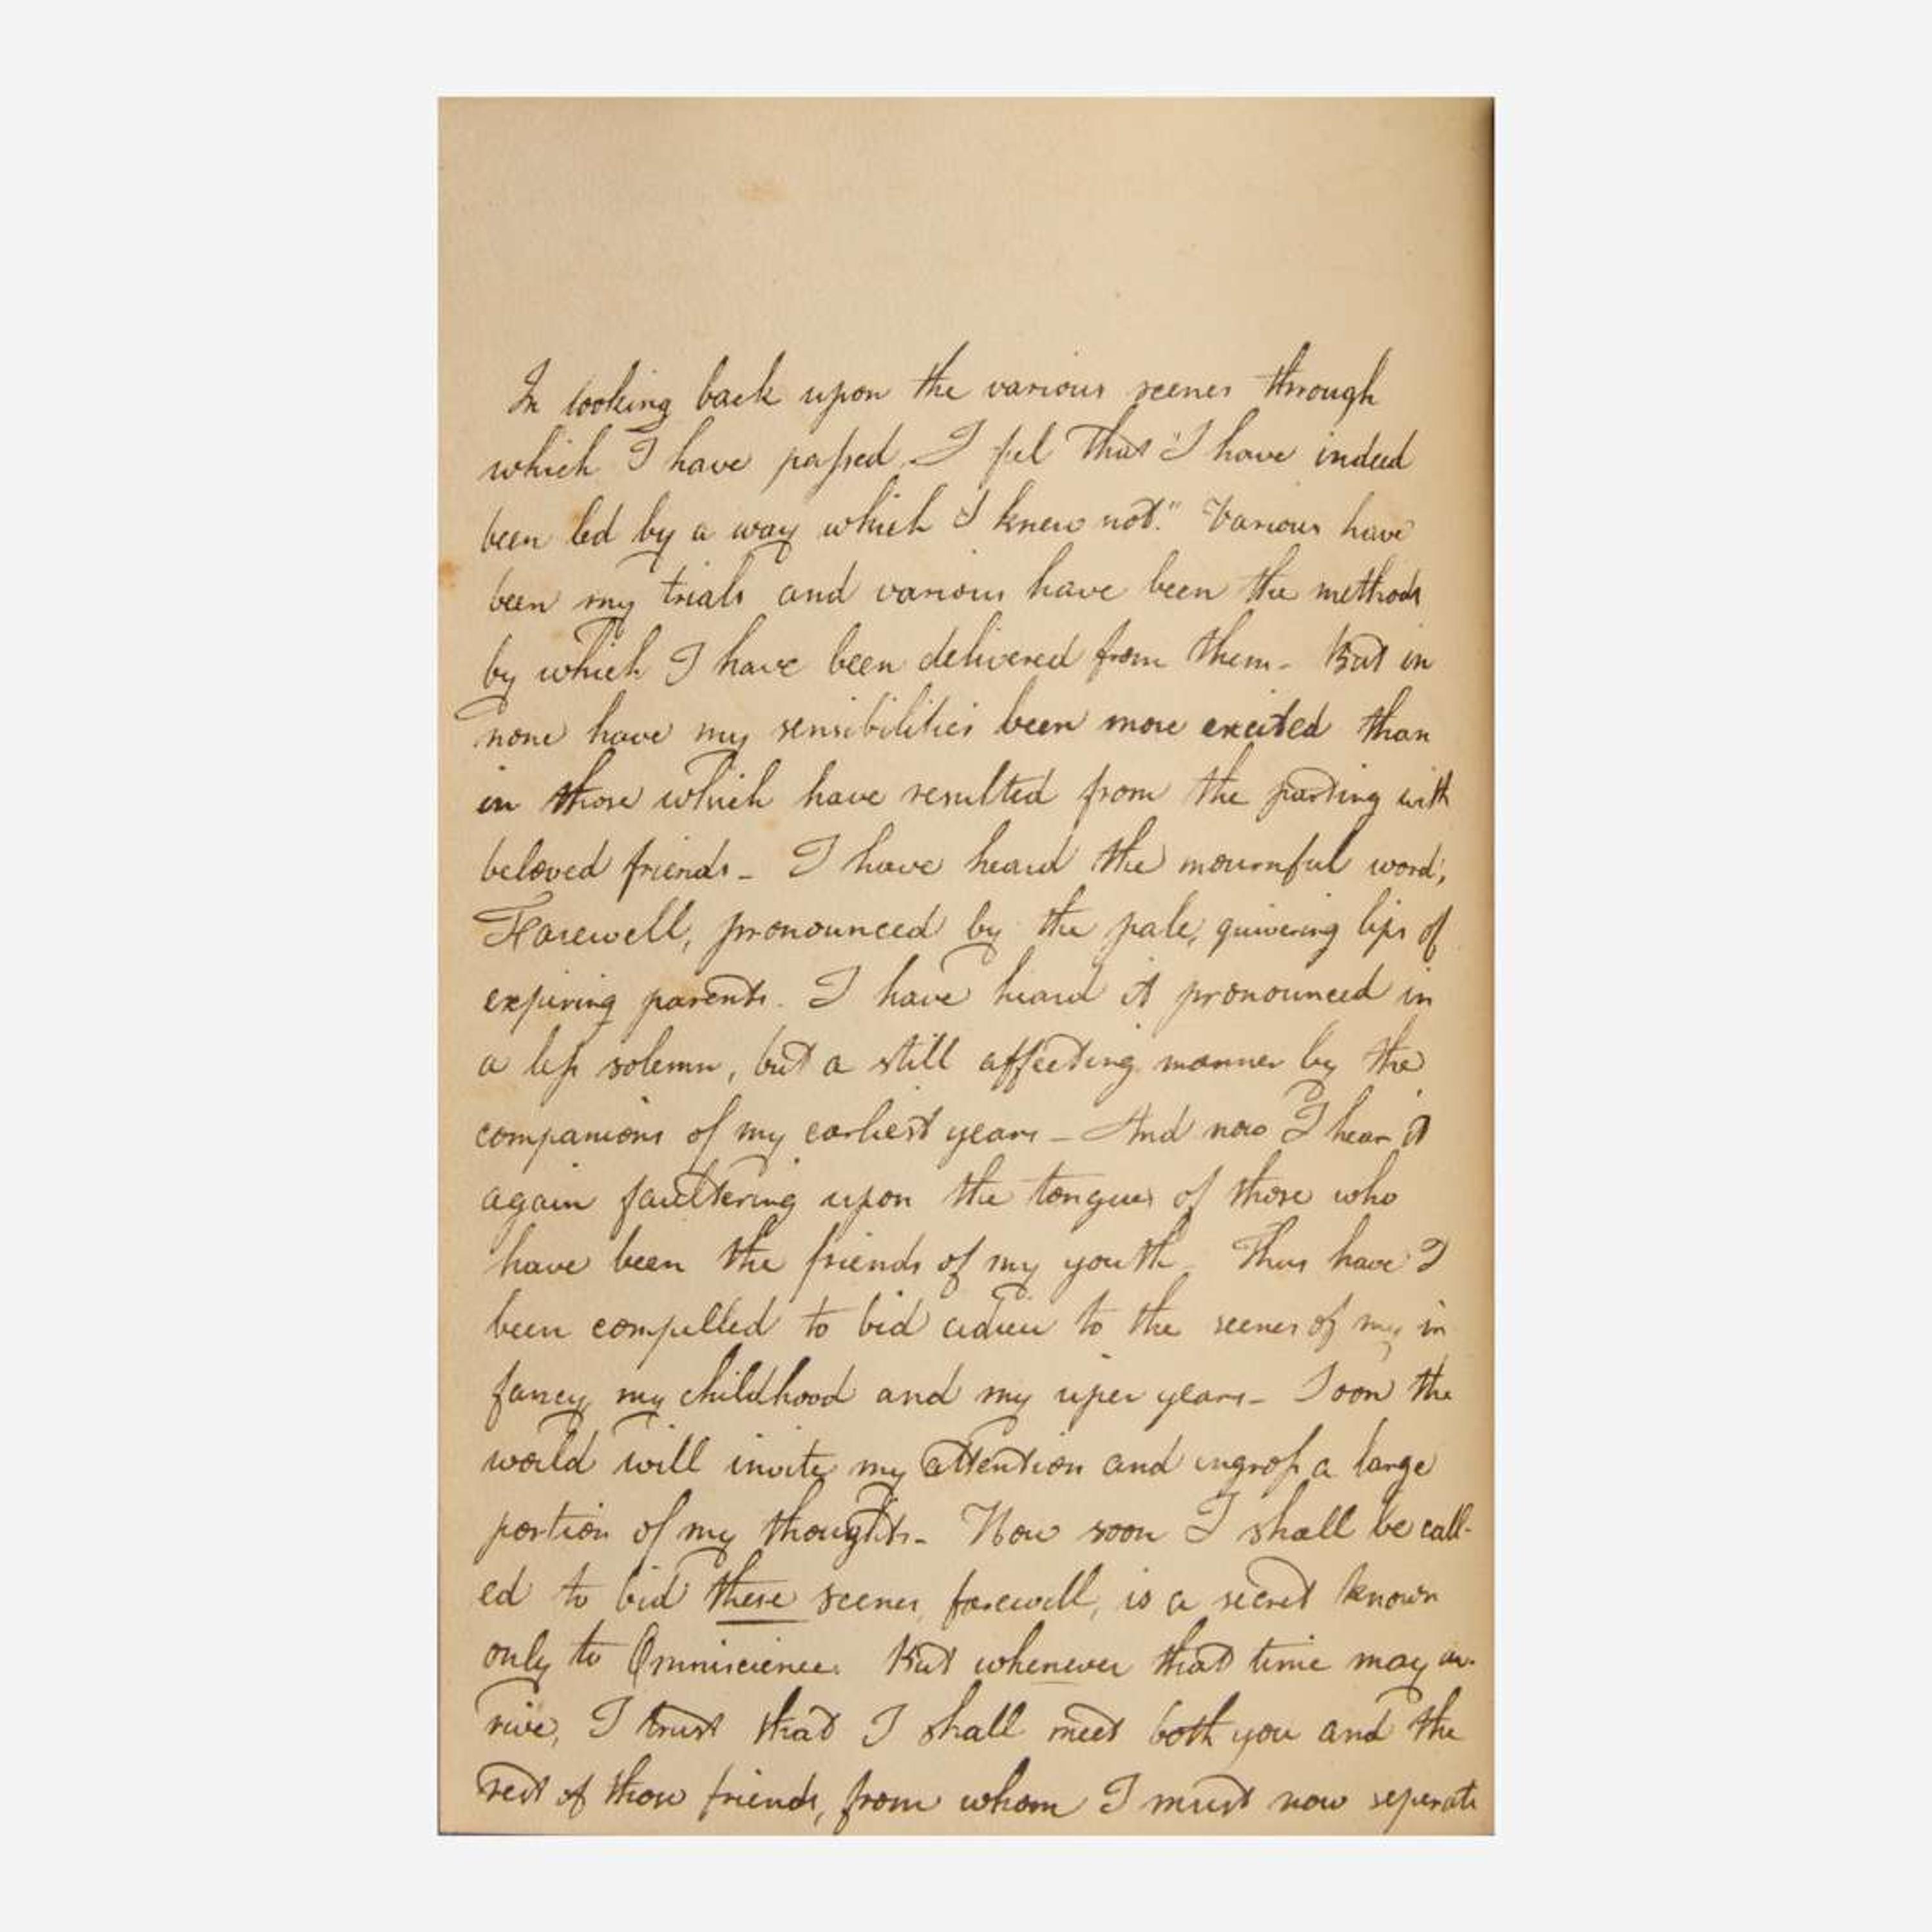 In looking back upon the various scenes through
which I have passed, I feel that "I have indeed
been led by a way which I knew not." Various have
been my trials and various have been the methods
by which I have been delivered from them - But in
none have my sensibilities been more excited than
in those which have resulted from the parting with
beloved friends - I have heard the mournful word,
Farewell, pronounced by the pale, quivering lips of
expiring parents. I have heard it pronounced in
a less solemn, but a still affecting manner by the
companions of my earliest years - And now I hear it
again faultering upon the tongues of those who
have been the friends of my youth. Thus have I
been compelled to bid adieu to the scenes of my in
fancy, my childhood and my riper years - Soon the
world will invite my attention and ingross a large
portion of my thoughts - How soon I shall be call-
ed to bid these scenes farewell, is a secret known
only to Omniscience. But whenever that time may ar-
rive, I trust that I shall meet both you and the
rest of those friends, from whom I must now seperate